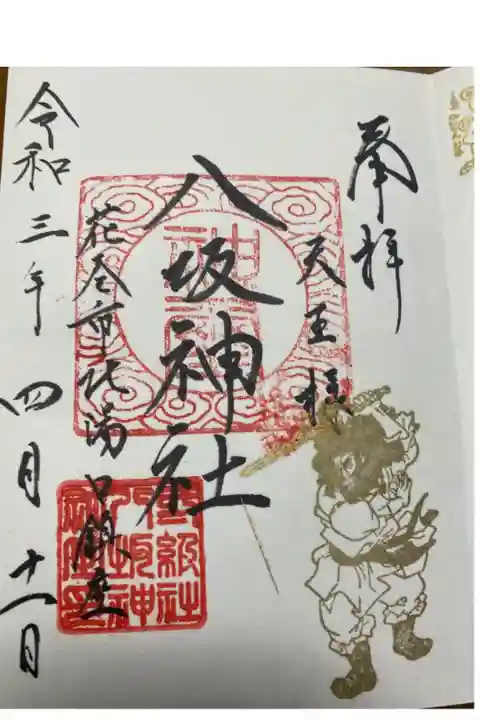 奉拝
天王様
八坂神社
花巻市北湯口鎮座
令和三年四月十一日